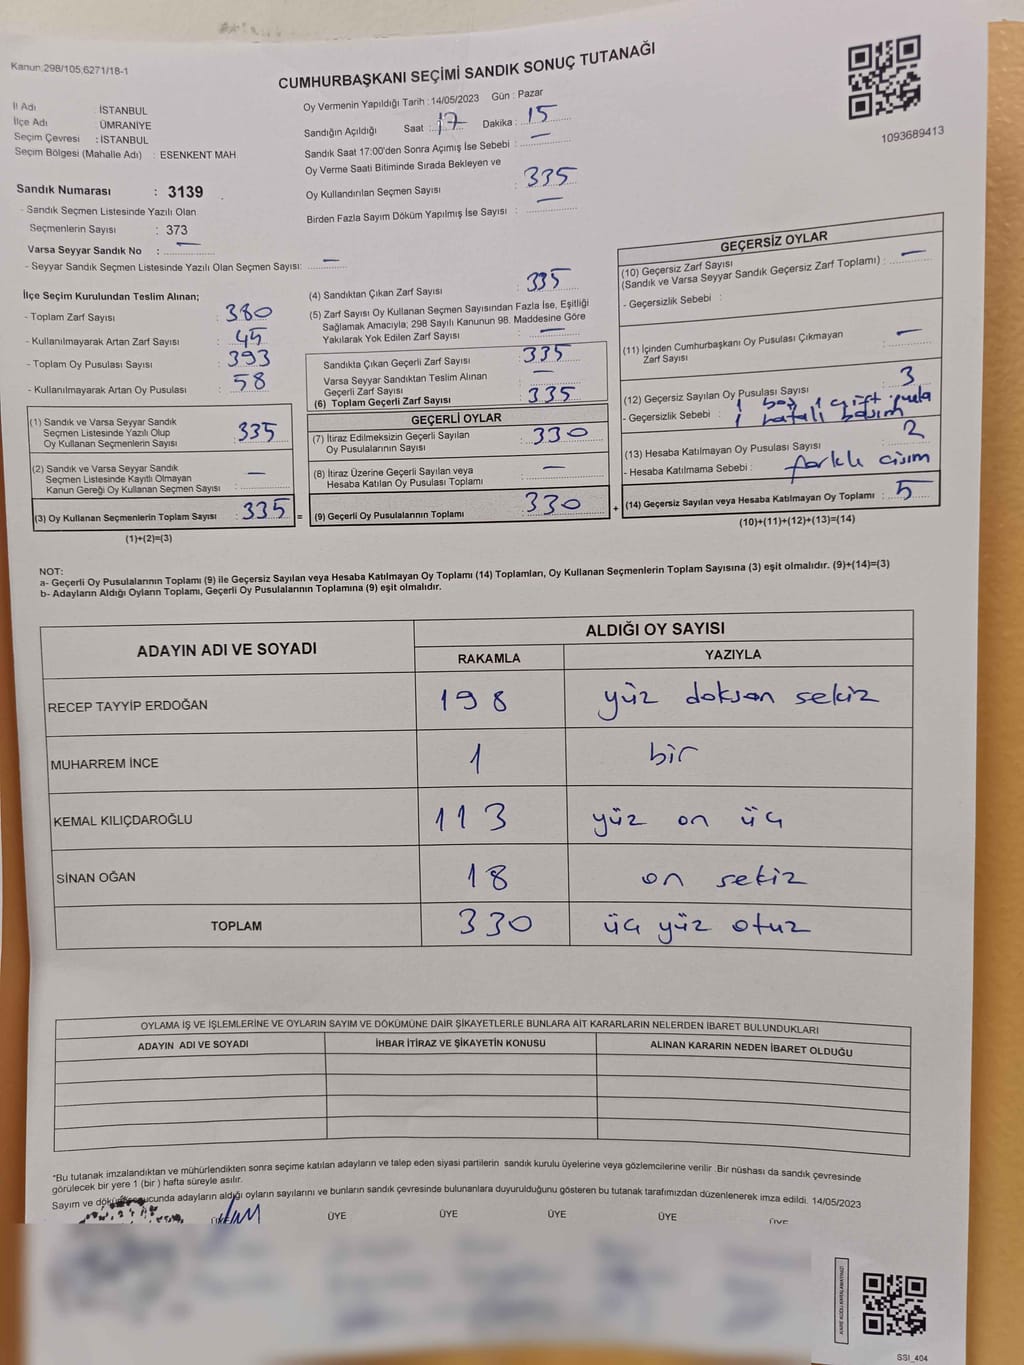 Kanun:298/105;6271/18-1
CUMHURBAŞKANI SEÇİMİ SANDIK SONUÇ TUTANAĞI
1093689413
İl Adı : İSTANBUL
İlçe Adı : ÜMRANİYE
Seçim Çevresi : İSTANBUL
Seçim Bölgesi (Mahalle Adı) : ESENKENT MAH
Sandık Numarası : 3139
- Sandık Seçmen Listesinde Yazılı Olan
Seçmenlerin Sayısı : 373
Varsa Seyyar Sandık No : —
- Seyyar Sandık Seçmen Listesinde Yazılı Olan Seçmen Sayısı: —
Oy Vermenin Yapıldığı Tarih : 14/05/2023 Gün : Pazar
Sandığın Açıldığı Saat : 17 Dakika : 15
Sandık Saat 17:00'den Sonra Açımış İse Sebebi : —
Oy Verme Saati Bitiminde Sırada Bekleyen ve
Oy Kullandırılan Seçmen Sayısı : 335
Birden Fazla Sayım Döküm Yapılmış İse Sayısı : —
İlçe Seçim Kurulundan Teslim Alınan;
- Toplam Zarf Sayısı : 380
- Kullanılmayarak Artan Zarf Sayısı : 45
- Toplam Oy Pusulası Sayısı : 393
- Kullanılmayarak Artan Oy Pusulası : 58
(1) Sandık ve Varsa Seyyar Sandık
Seçmen Listesinde Yazılı Olup
Oy Kullanan Seçmenlerin Sayısı : 335
(2) Sandık ve Varsa Seyyar Sandık
Seçmen Listesinde Kayıtlı Olmayan
Kanun Gereği Oy Kullanan Seçmen Sayısı : —
(3) Oy Kullanan Seçmenlerin Toplam Sayısı : 335 =
(1)+(2)=(3)
(4) Sandıktan Çıkan Zarf Sayısı : 335
(5) Zarf Sayısı Oy Kullanan Seçmen Sayısından Fazla İse, Eşitliği
Sağlamak Amacıyla; 298 Sayılı Kanunun 98. Maddesine Göre
Yakılarak Yok Edilen Zarf Sayısı : —
Sandıkta Çıkan Geçerli Zarf Sayısı : 335
Varsa Seyyar Sandıktan Teslim Alınan
Geçerli Zarf Sayısı : —
(6) Toplam Geçerli Zarf Sayısı : 335
GEÇERLİ OYLAR
(7) İtiraz Edilmeksizin Geçerli Sayılan
Oy Pusulasının Sayısı : 330
(8) İtiraz Üzerine Geçerli Sayılan veya
Hesaba Katılan Oy Pusulası Toplamı : —
(9) Geçerli Oy Pusulalarının Toplamı : 330 +
GEÇERSİZ OYLAR
(10) Geçersiz Zarf Sayısı
(Sandık ve Varsa Seyyar Sandık Geçersiz Zarf Toplamı) : —
- Geçersizlik Sebebi :
(11) İçinden Cumhurbaşkanı Oy Pusulası Çıkmayan
Zarf Sayısı : —
(12) Geçersiz Sayılan Oy Pusulası Sayısı : 3
1 boş 1 çift pusla
- Geçersizlik Sebebi : 1 hatalı basım
(13) Hesaba Katılmayan Oy Pusulası Sayısı : 2
- Hesaba Katılmama Sebebi : farklı cisim
(14) Geçersiz Sayılan veya Hesaba Katılmayan Oy Toplamı : 5
(10)+(11)+(12)+(13)=(14)
NOT:
a- Geçerli Oy Pusulalarının Toplamı (9) ile Geçersiz Sayılan veya Hesaba Katılmayan Oy Toplamı (14) Toplamları, Oy Kullanan Seçmenlerin Toplam Sayısına (3) eşit olmalıdır. (9)+(14)=(3)
b- Adayların Aldığı Oyların Toplamı, Geçerli Oy Pusulalarının Toplamına (9) eşit olmalıdır.
ADAYIN ADI VE SOYADI ALDIĞI OY SAYISI
RAKAMLA YAZIYLA
RECEP TAYYİP ERDOĞAN 198 yüz doksan sekiz
MUHARREM İNCE 1 bir
KEMAL KILIÇDAROĞLU 113 yüz on üç
SİNAN OĞAN 18 on sekiz
TOPLAM 330 üç yüz otuz
OYLAMA İŞ VE İŞLEMLERİNE VE OYLARIN SAYIM VE DÖKÜMÜNE DAİR ŞİKAYETLERLE BUNLARA AİT KARARLARIN NELERDEN İBARET BULUNDUKLARI
ADAYIN ADI VE SOYADI İHBAR İTİRAZ VE ŞİKAYETİN KONUSU ALINAN KARARIN NEDEN İBARET OLDUĞU
*Bu tutanak imzalandıktan ve mühürlendikten sonra seçime katılan adayların ve talep eden siyasi partilerin sandık kurulu üyelerine veya gözlemcilerine verilir .Bir nüshası da sandık çevresinde
görülecek bir yere 1 (bir ) hafta süreyle asılır.
Sayım ve döküm sonucunda adayların aldığı oyların sayılarını ve bunların sandık çevresinde bulunanlara duyurulduğunu gösteren bu tutanak tarafımızdan düzenlenerek imza edildi. 14/05/2023
ÜYE ÜYE ÜYE ÜYE ÜYE
SSI_404